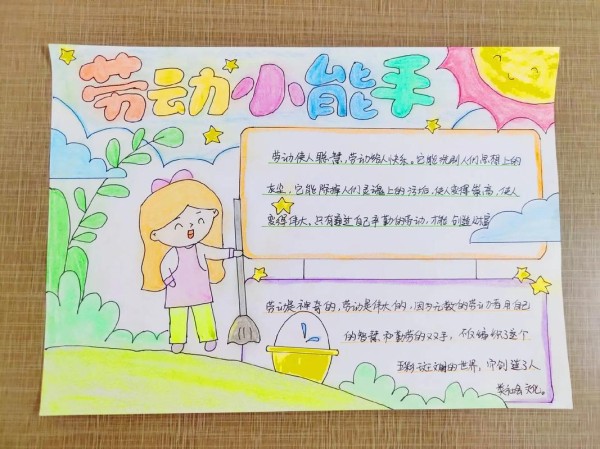 劳动小能手
劳动使人聪慧,劳动给人快乐。它能洗刷人们思想上的
灰尘,它能除掉人们灵魂上的污垢,使人变得崇高,使人
变得伟大,只有通过自己辛勤的劳动,才能创造财富
劳动是神奇的,劳动是伟大的,因为无数的劳动者用自己
的智慧和勤劳的双手,不仅编织了这个
斑斓的世界,而创造了人
类社会文化。